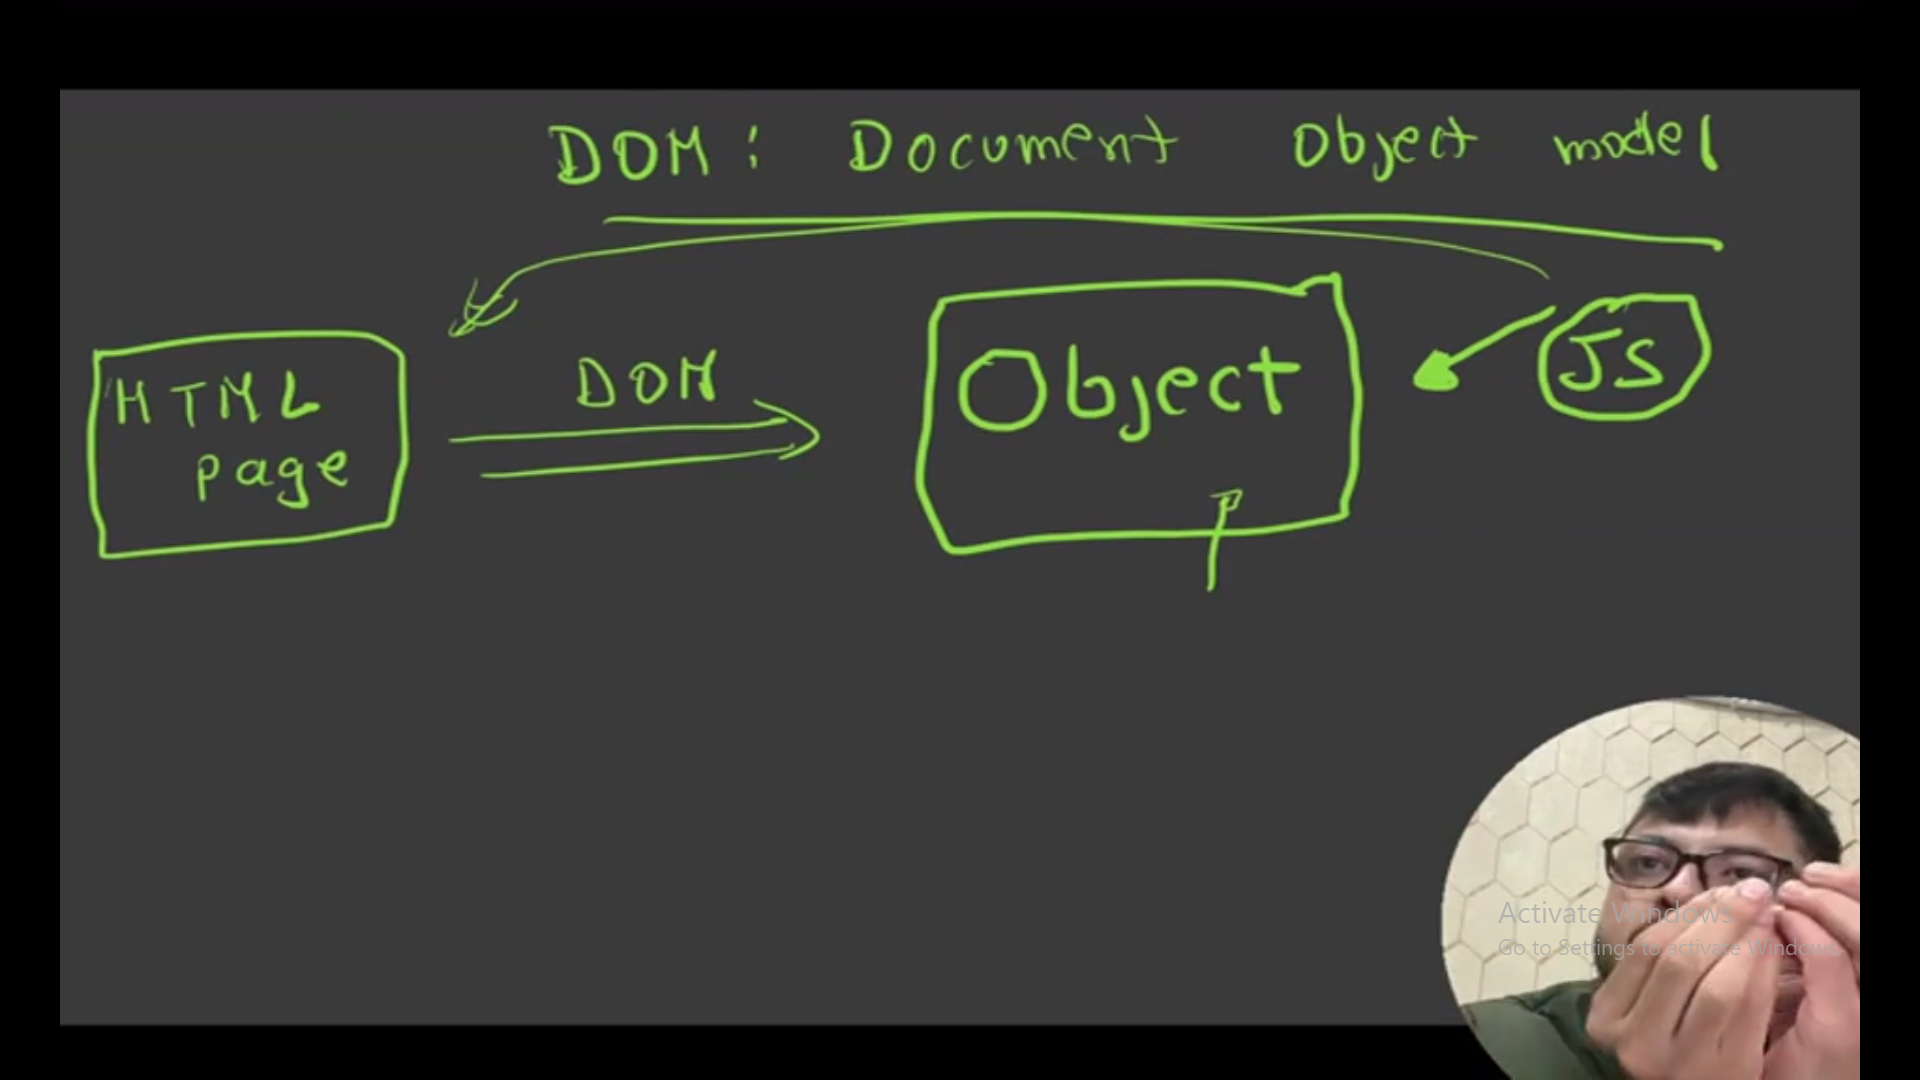 DOM : Document Object model
HTML
page
DOM
Object
JS
Activate Windows
Go to Settings to activate Windows.